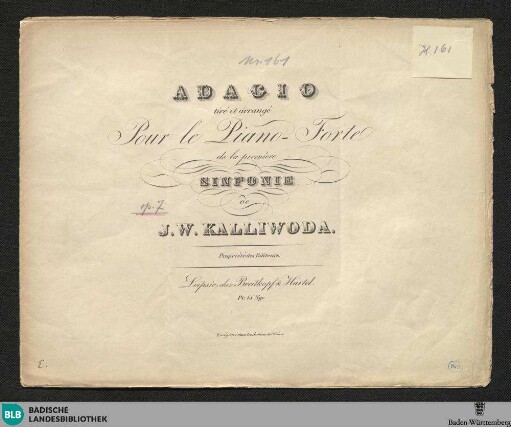 No 161
H. 161
ADAGIO
tiré et arrangé
Pour le Piano-Forte
de la première
SINFONIE
de
op. 7
J. W. KALLIWODA.
Propriété des Editeurs.
Leipsic, chez Breitkopf & Härtel.
Pr. 15 Ngr.
E.
BLB BADISCHE
LANDESBIBLIOTHEK
Baden-Württemberg